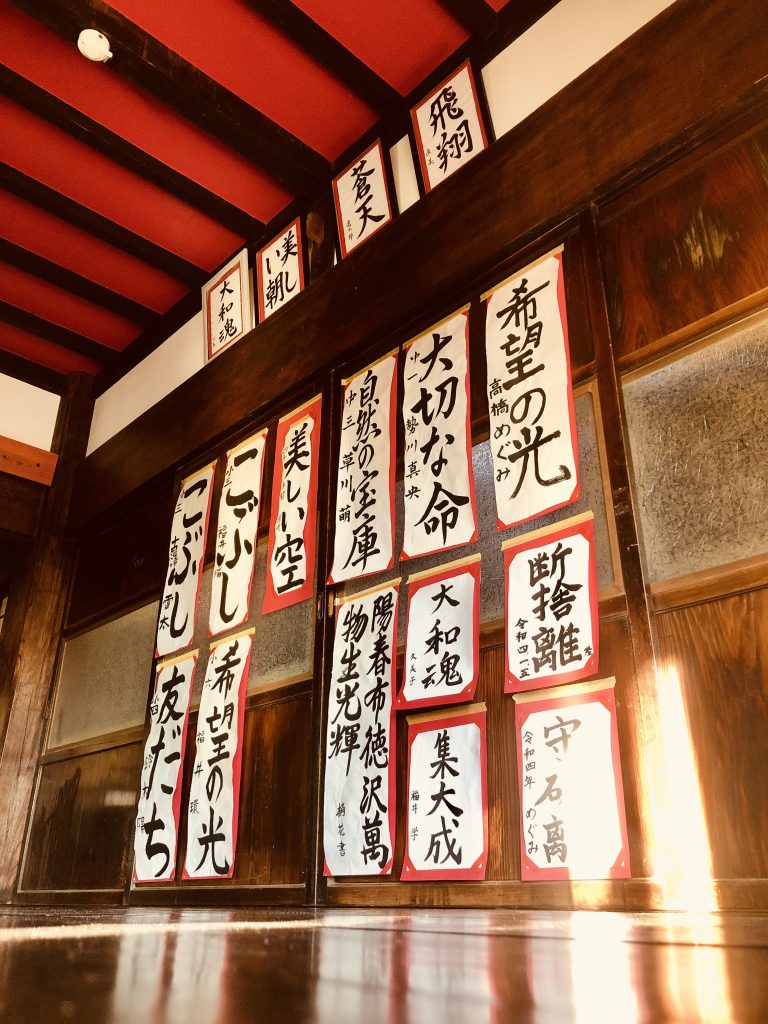 飛翔
蒼天
美し
い朝
大和魂
希望の光
高橋めぐみ
大切な命
中一 勢川真央
自然の宝庫
中三 草川萌
美しい空
こぶし
小三 福井
こぶし
断捨離
令和四一五
大和魂
久美子
陽春布徳沢萬
物生光輝
希望の光
小六 福井環
友だち
小四 鈴木
守 離
令和四年 めぐみ
集大成
福井学